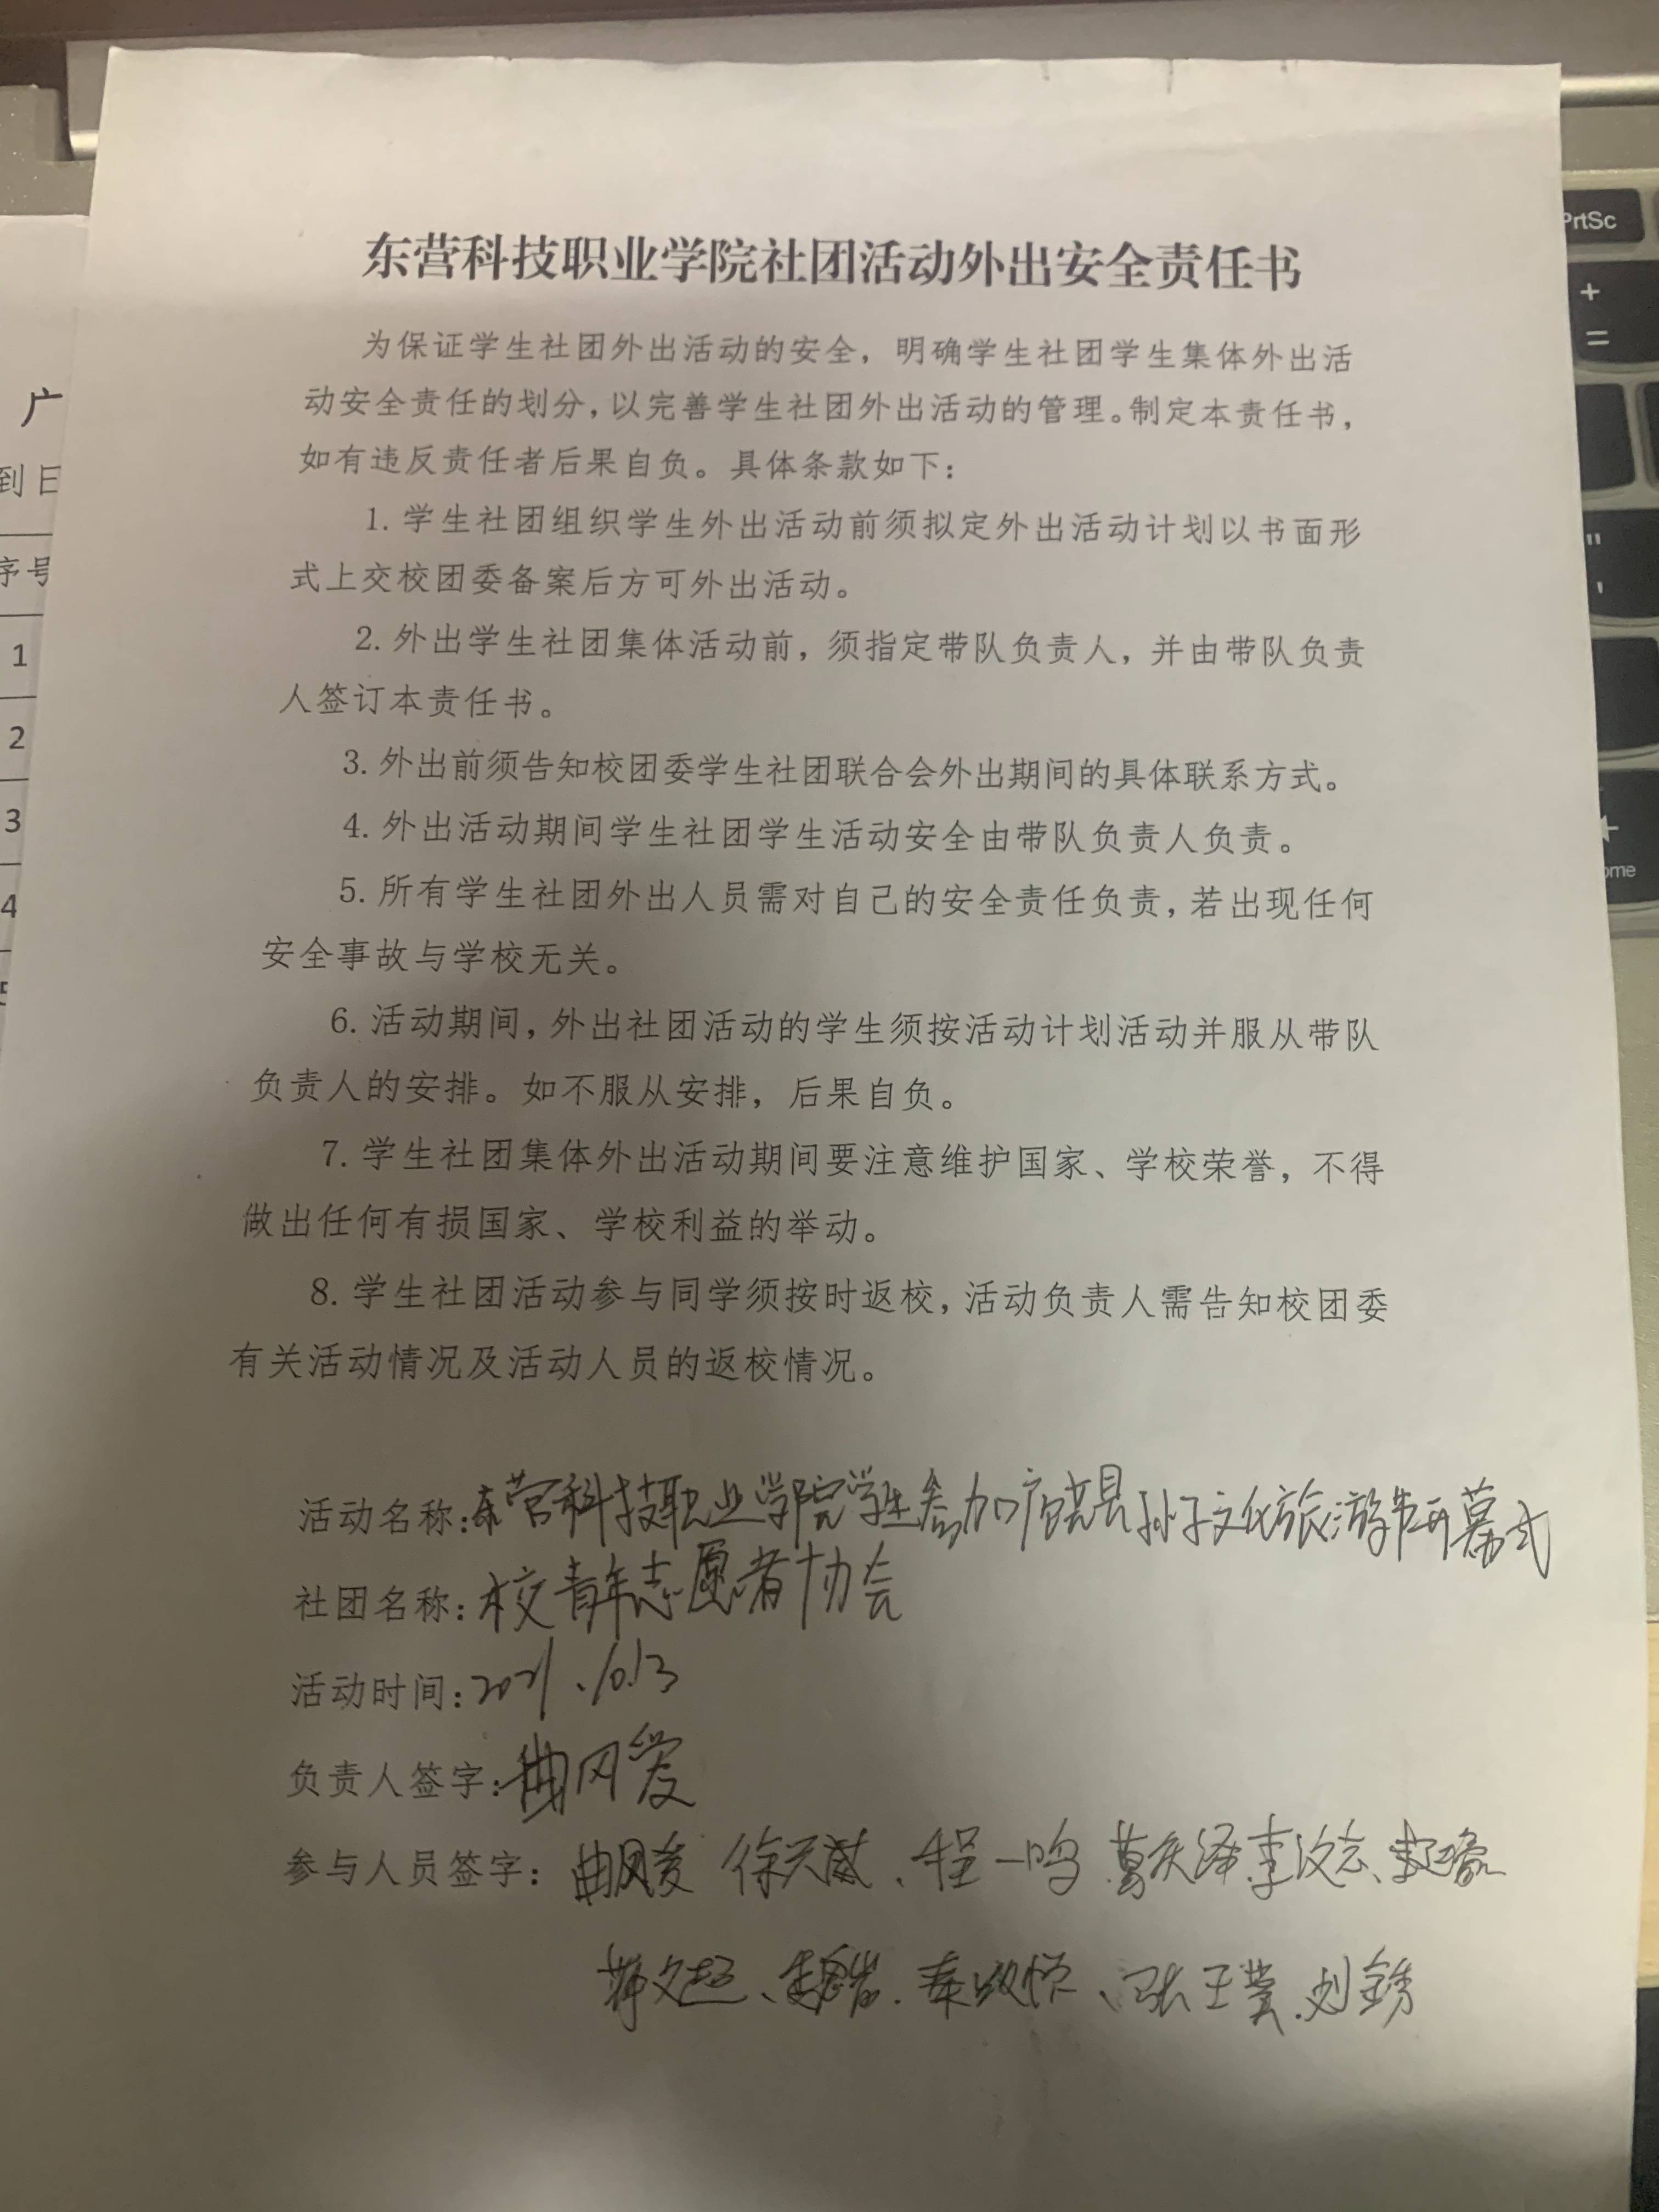 东营科技职业学院社团活动外出安全责任书
为保证学生社团外出活动的安全，明确学生社团学生集体外出活
动安全责任的划分，以完善学生社团外出活动的管理。制定本责任书，
如有违反责任者后果自负。具体条款如下：
1. 学生社团组织学生外出活动前须拟定外出活动计划以书面形
式上交校团委备案后方可外出活动。
2. 外出学生社团集体活动前，须指定带队负责人，并由带队负责
人签订本责任书。
3. 外出前须告知校团委学生社团联合会外出期间的具体联系方式。
4. 外出活动期间学生社团学生活动安全由带队负责人负责。
5. 所有学生社团外出人员需对自己的安全责任负责，若出现任何
安全事故与学校无关。
6. 活动期间，外出社团活动的学生须按活动计划活动并服从带队
负责人的安排。如不服从安排，后果自负。
7. 学生社团集体外出活动期间要注意维护国家、学校荣誉，不得
做出任何有损国家、学校利益的举动。
8. 学生社团活动参与同学须按时返校，活动负责人需告知校团委
有关活动情况及活动人员的返校情况。
活动名称：东营科技职业学院学生参加广饶县孙子文化旅游节开幕式
社团名称：校青年志愿者协会
活动时间：2021.10.13
负责人签字：
参与人员签字： 徐天威、程一鸣 葛庆泽
刘锈
广
到日
序号
1
2
3
4
5
PrtSc
+
=
"
'
ome